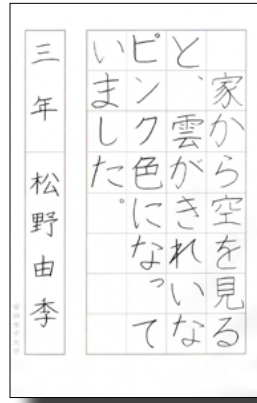 家から空を見る
と、雲がきれいな
ピンク色になって
いました。
三年 松野由季